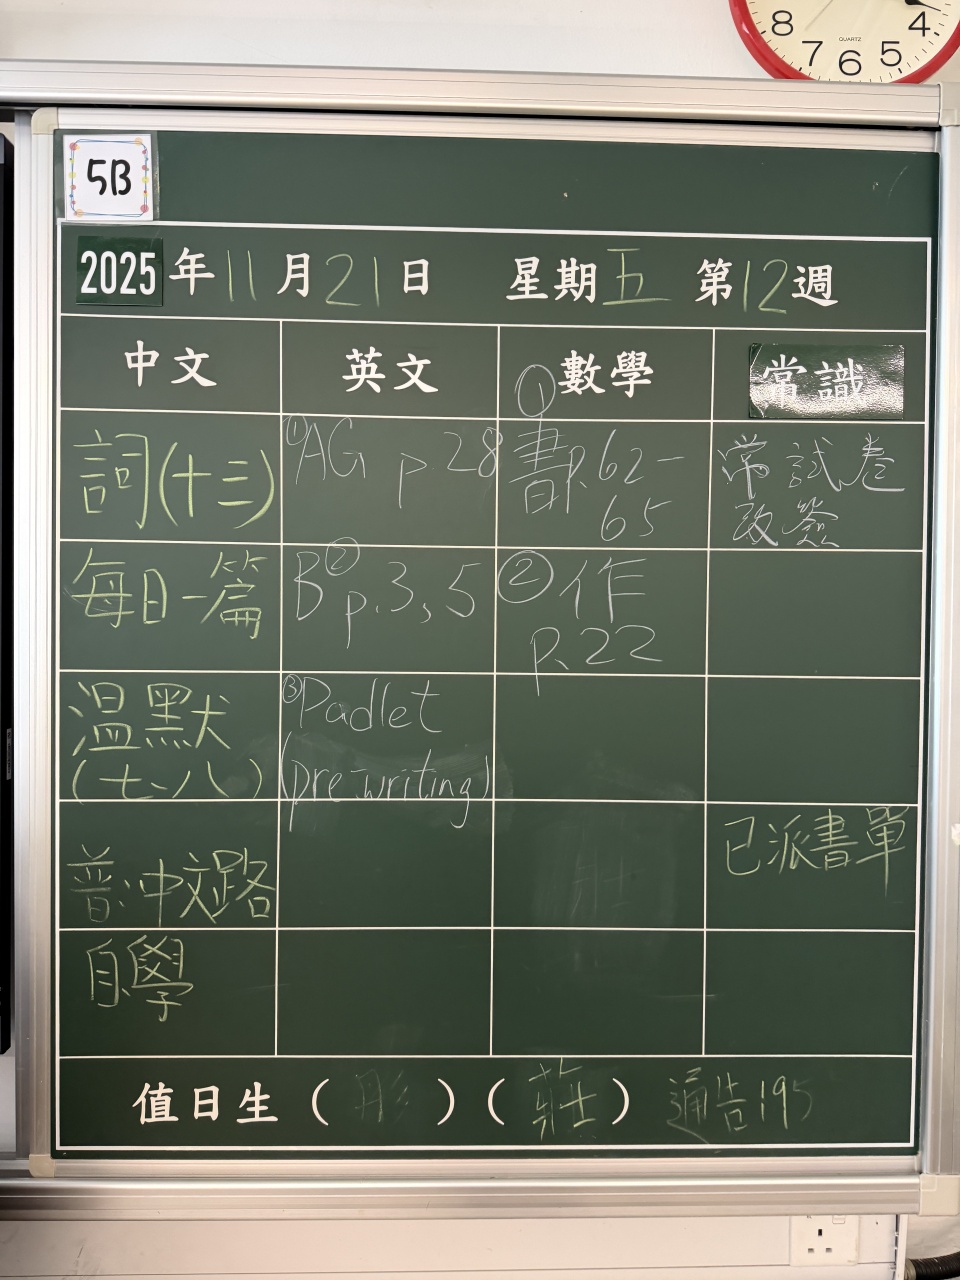 8 7 6 5 4
QUARTZ
5B
2025年11月21日 星期五 第12週
中文 英文 數學 常識
詞(十三)
每日一篇
溫默
(七、八)
普、中文路
自學
①AG p.28
B②
p.3, 5
③Padlet
(pre-writing)
①
書P.62-
65
②作
P.22
常試卷
改簽
已派書單
值日生(彤)(莊) 通告195